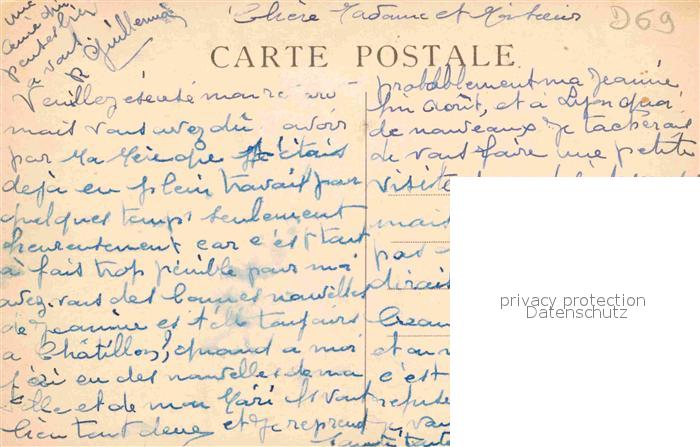 Chère Madame et Monsieur
D69
CARTE POSTALE
Veuillez
mais vous avez dû avoir
par ma Mère que j'étais
déjà en plein travail pour
quelques temps seulement
heureusement car c'est tout
à fait trop pénible pour moi
avez vous des bonnes nouvelles
de Jeanine est elle toujours
a Châtillon?, quand a moi
j'ai eu des nouvelles de ma
fille et de mon Mari ils vont
bien tout deux et je reprend
probablement ma Jeanine
fin Août, et à Lyon
de nouveaux je tacherai
de vous faire une petite
visite
mais
pas
dirais
beau
et
c'est
vous
une
amie
peut être
a vous
Guillermin
privacy protection
Datenschutz